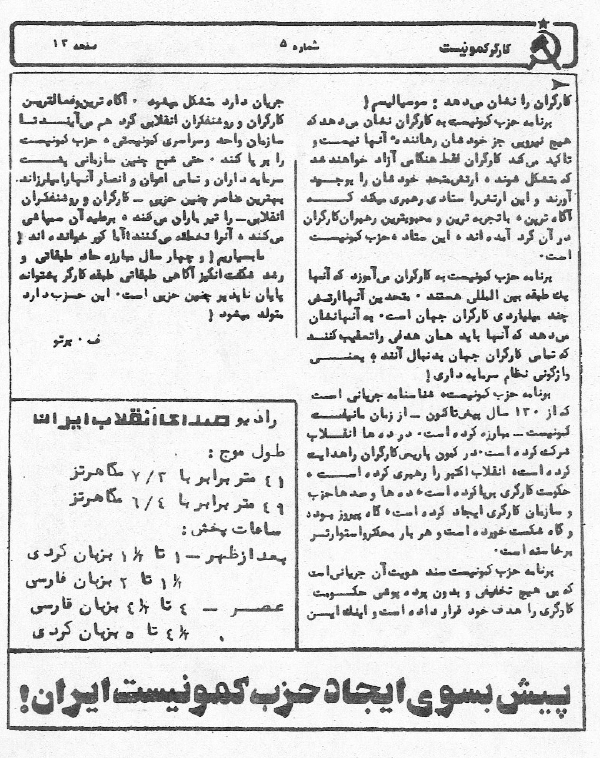 کارگر کمونیست
شماره ۵
صفحه ۱۲
کارگران را نشان می‌دهد : سوسیالیسم !
برنامه حزب کمونیست به کارگران نشان می‌دهد که
هیچ نیرویی جز خودشان رهاننده آنها نیست و
تاکید می‌کند کارگران فقط هنگامی آزاد خواهند شد
که متشکل شوند ، ارتش متحد خودشان را بوجود
آورند و این ارتش را ستادی رهبری میکند که
آگاه ترین ، با تجربه ترین و محبوبترین رهبران کارگران
در آن گرد آمده‌اند ، این ستاد ، حزب کمونیست
است .
برنامه حزب کمونیست به کارگران می‌آموزد که آنها
یک طبقه بین المللی هستند . متحدین آنها ارتش
چند میلیاردی کارگران جهان است . به آنها نشان
می‌دهد که آنها باید همان هدفی را تعقیب کنند
که تمامی کارگران جهان بدنبال آنند ، یعنی
واژگونی نظام سرمایه داری !
برنامه حزب کمونیست ، شناسنامه جریانی است
که از ۱۳۰ سال پیش تاکنون - از زمان مانیفست
کمونیست - مبارزه کرده است . در ده ها انقلاب
شرکت کرده است . در کمون پاریس کارگران را هدایت
کرده است ، انقلاب اکتبر را رهبری کرده است ،
حکومت کارگری برپا کرده است ، ده ها و صد ها حزب
و سازمان کارگری ایجاد کرده است ، گاه پیروز بوده
و گاه شکست خورده است و هر بار محکم و استوارتر
برخاسته است .
برنامه حزب کمونیست سند هویت آن جریانی است
که بی هیچ تخفیفی و بدون پرده پوشی حکومت
کارگری را هدف خود قرار داده است و اینک این
جریان دارد متشکل میشود . آگاه ترین و فعالترین
کارگران و روشنفکران انقلابی گرد هم می‌آیند تا
سازمان واحد و سراسری کمونیستی ، حزب کمونیست
را برپا کنند . حتی شبح چنین سازمانی پشت
سرمایه داران و تمامی اعوان و انصار آنها را میلرزاند.
بهترین عناصر چنین حزبی - کارگران و روشنفکران
انقلابی - را تیر باران می‌کنند ، بر علیه آن سمپاشی
می‌کنند ، آنرا تخطئه می‌کنند! اما کور خوانده اند !
ما بسیاریم ! و چهار سال مبارزه حاد طبقاتی و
رشد شگفت انگیز آگاهی طبقاتی طبقه کارگر پشتوانه
پایان ناپذیر چنین حزبی است . این حزب دارد
متولد میشود !
ف . پرتو
رادیو صدای انقلاب ایران
طول موج :
۴۱ متر برابر با ۷/۲ مگاهرتز
۴۹ متر برابر با ۶/۴ مگاهرتز
ساعات پخش :
بعد از ظهر - ۱ تا ۱½ بزبان کردی
۱½ تا ۲ بزبان فارسی
عصر - ۴ تا ۴½ بزبان فارسی
۴½ تا ۵ بزبان کردی
پیش بسوی ایجاد حزب کمونیست ایران!